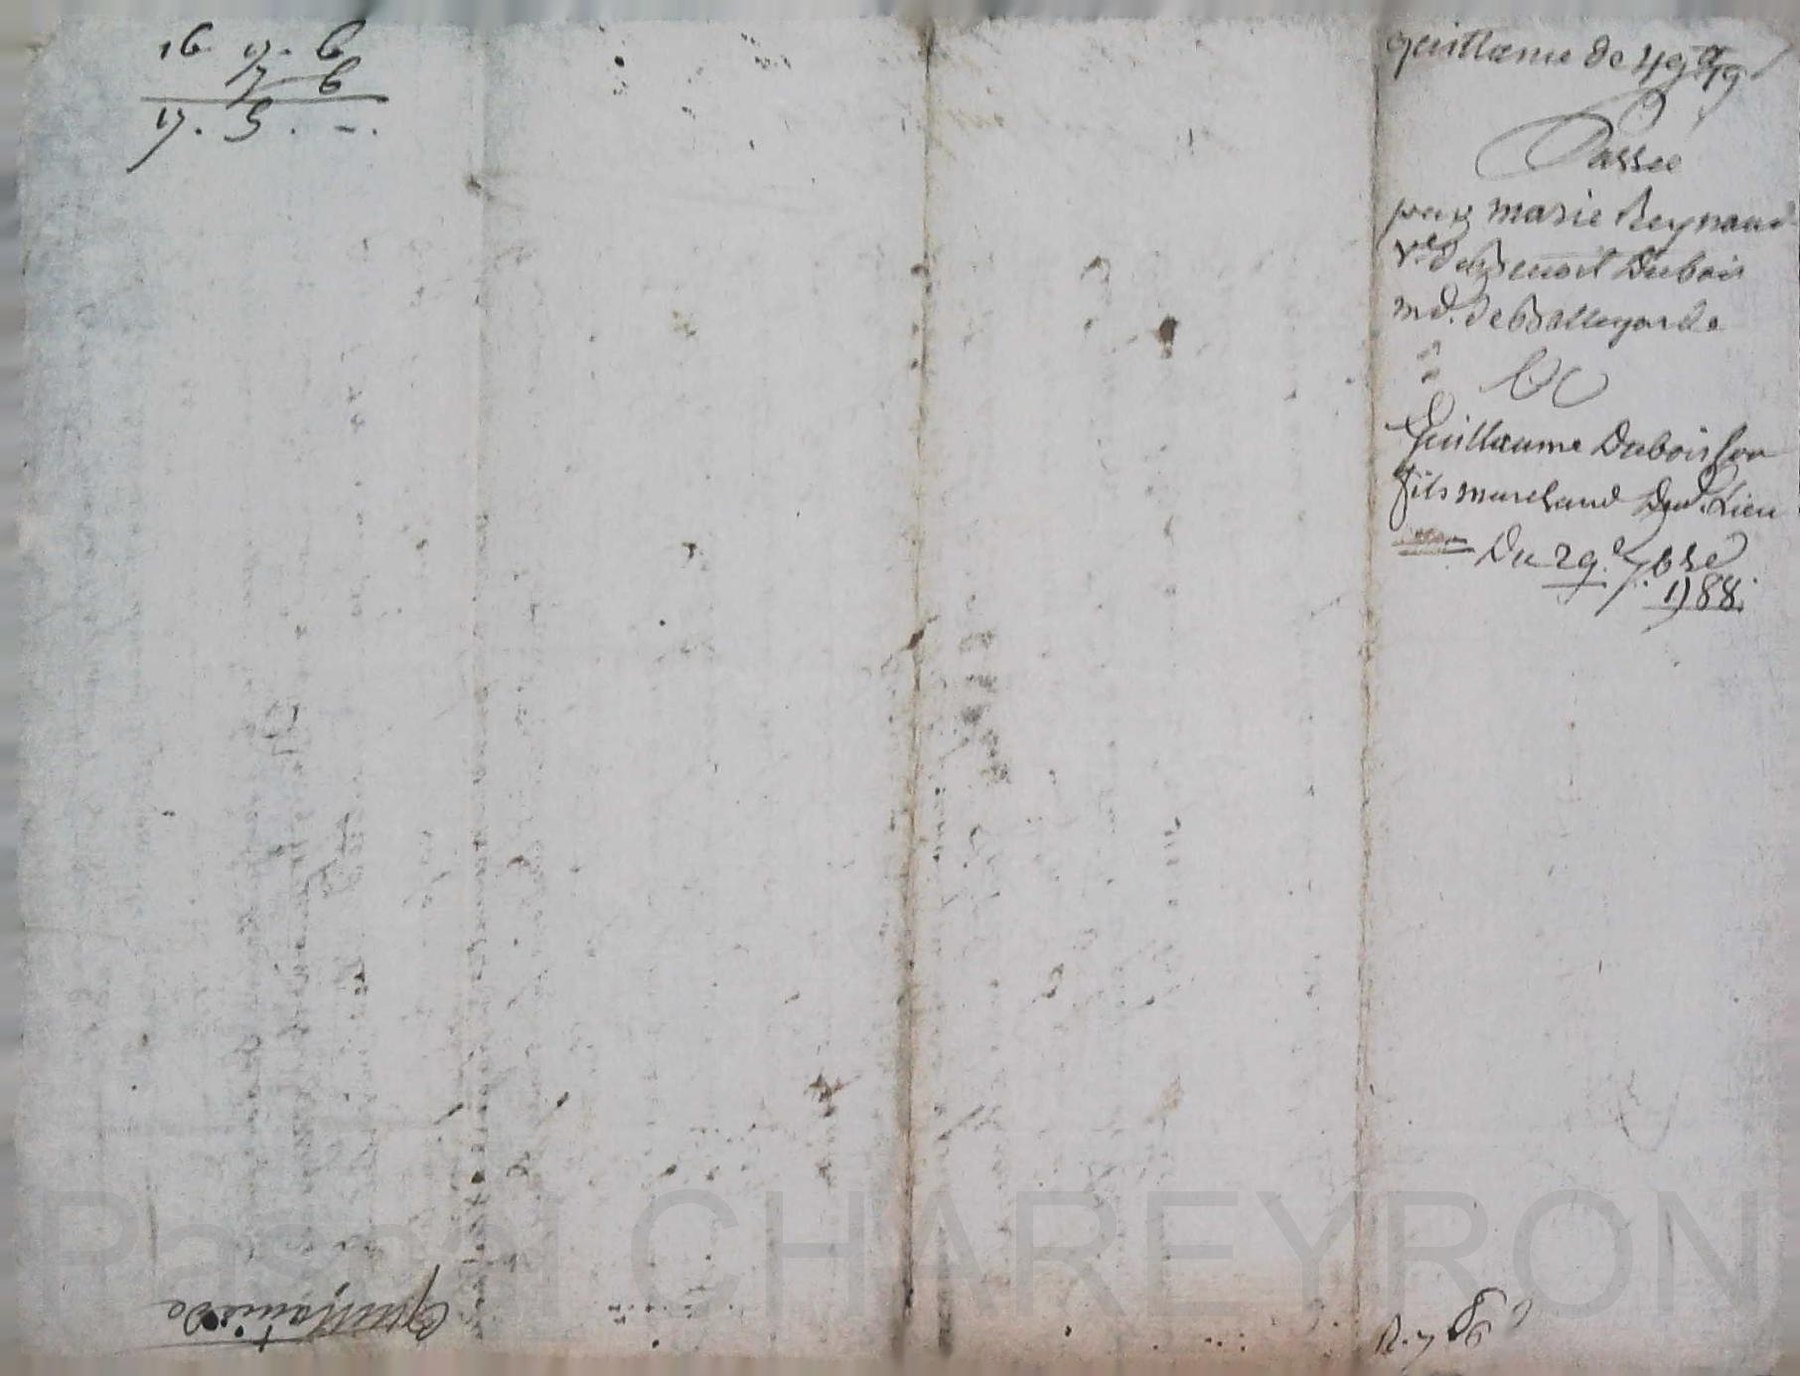 16 17. 6
7 6
17. 5. -.
quittance de 49
Passee
par marie Reynaud
Ve de Benoit Dubois
md. de Bellegarde
a
Guillaume Dubois son
fils marchand dud. Lieu
Du 29e 7bre
1788.
quittance de
R. 7
Pascal CHAREYRON